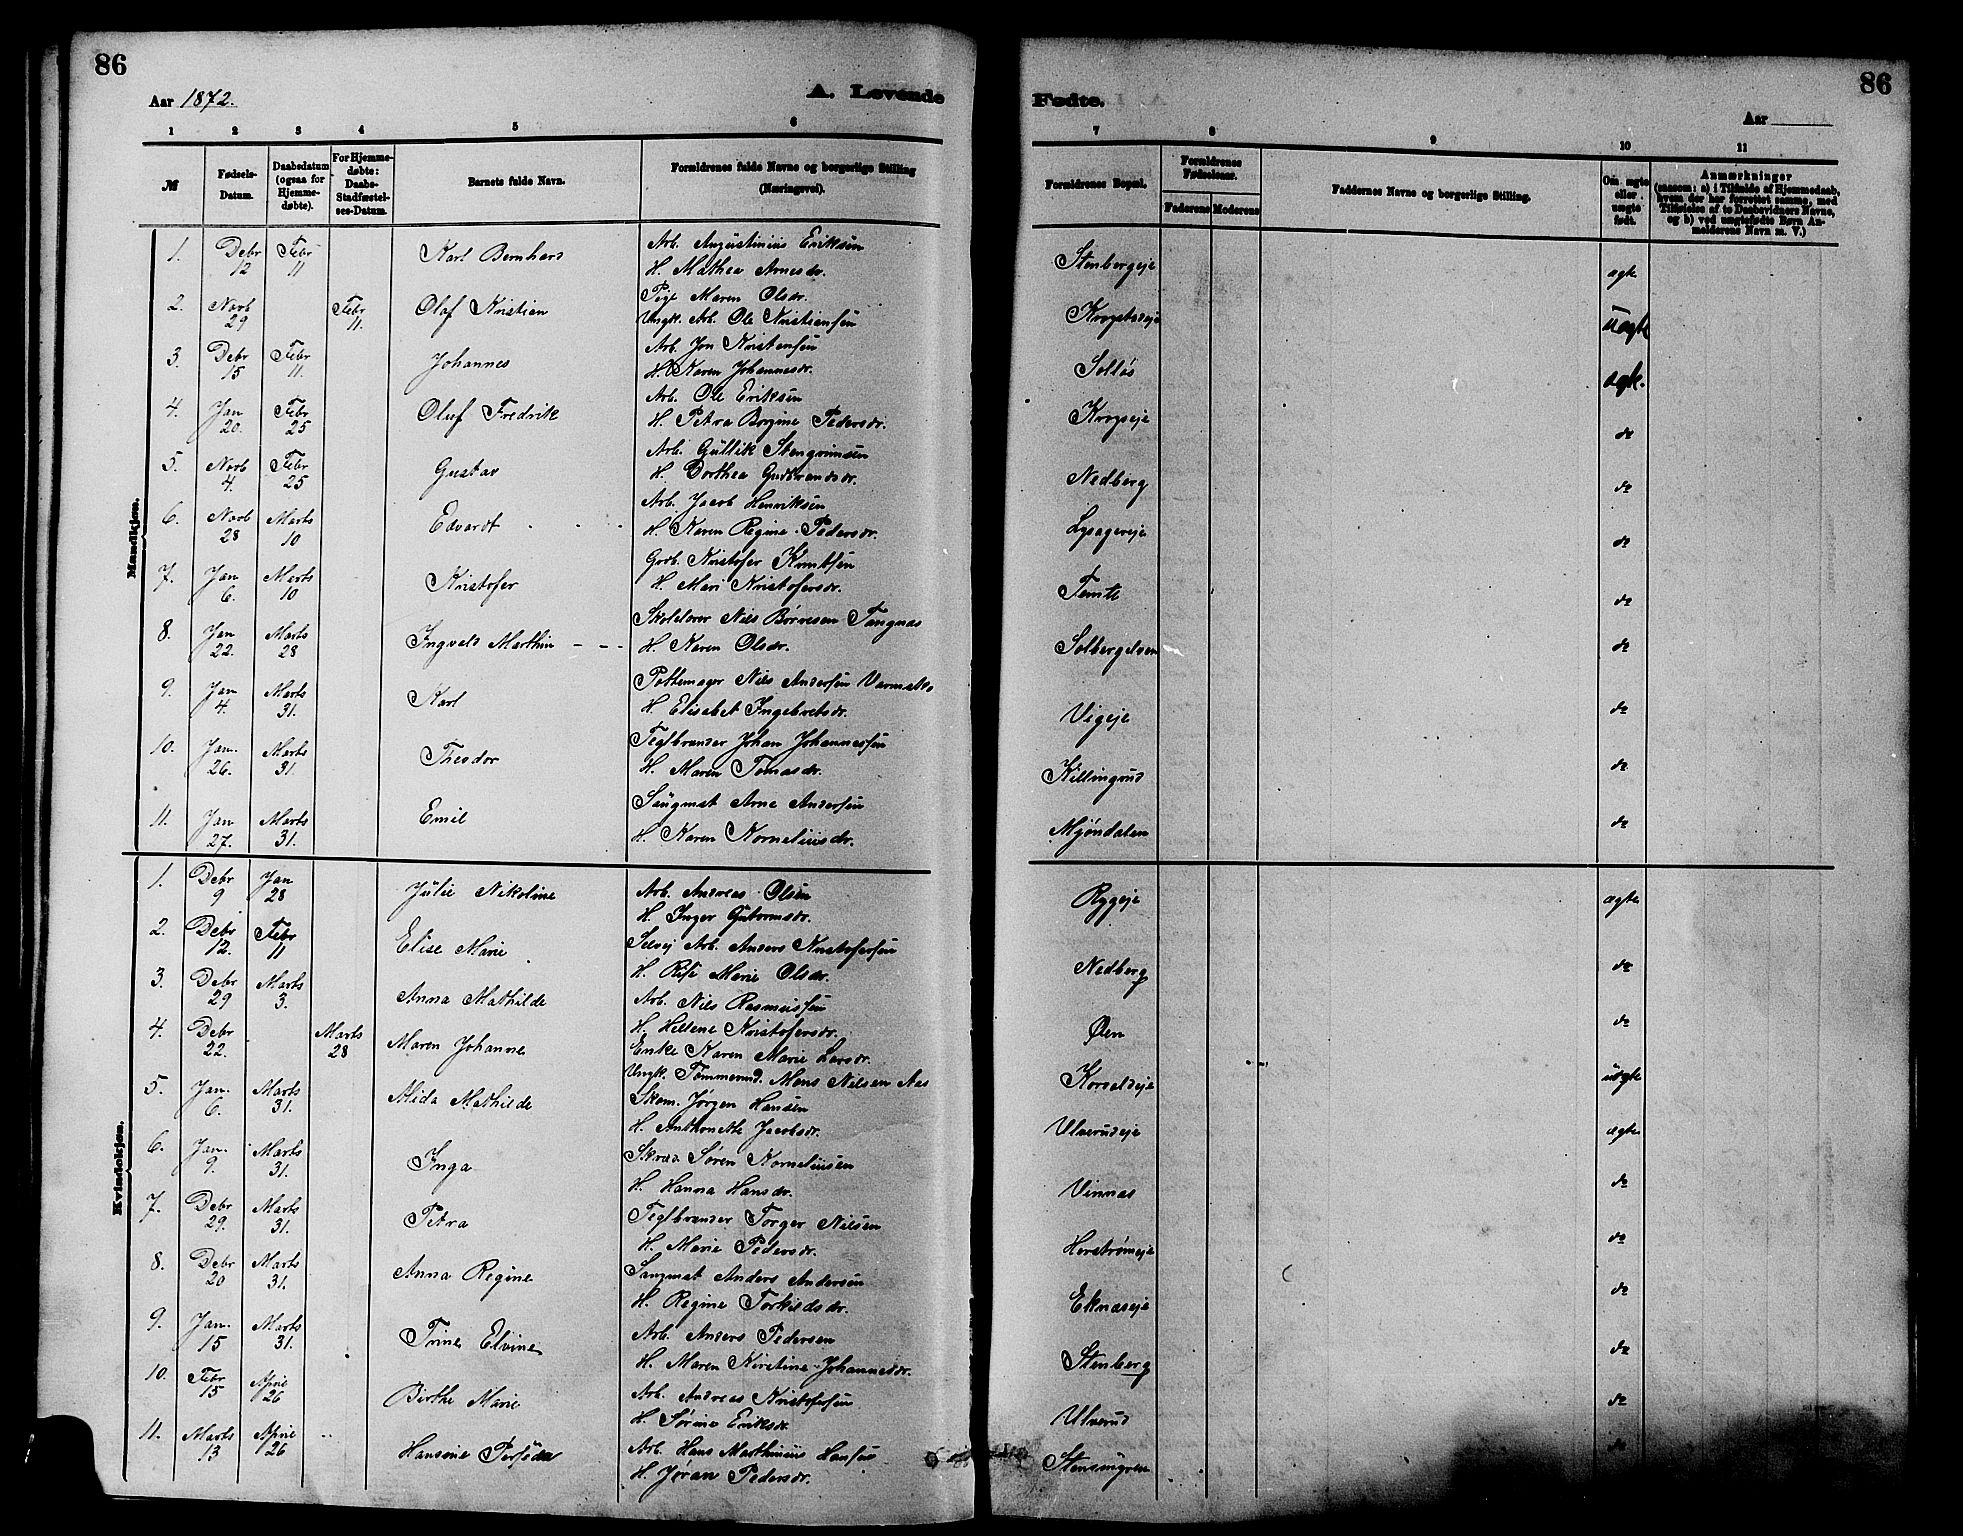 86
Aar 1872.
A. Levende
1 2 3 4 5 6
№ Fødsels-Datum. Daabsdatum (ogsaa for Hjemmedøbte). For Hjemmedøbte: Daabs-Stadfæstelses-Datum. Barnets fulde Navn. Forældrenes fulde Navne og borgerlige Stilling (Næringsvei).
Mandkjøn.
1. Debr 12 Febr 11 Karl Bernhard Arb. Augustinius Eriksen
H. Mathea Arnesdr.
2. Novb 29 Febr 11. Olaf Kristian Pige Maren Olsdr.
Ungk. Arb. Ole Kristiansen
3. Debr 15 Febr 11. Johannes Arb. Jon Kristensen
H. Karen Johannesdr.
4. Jan 20. Febr 25 Oluf Fredrik Arb. Ole Eriksen
H. Petra Borgine Pedersdr.
5. Novb 4. Febr 25 Gustav Arb. Gullik Stengrimsen
H. Dorthea Gudbrandsdr.
6. Novb 28 Marts 10 Edvardt Arb. Jacob Henriksen
H. Karen Regine Pedersdr.
7. Jan 6. Marts 10 Kristofer Grdb. Kristofer Knutsen
H. Mari Kristofersdr.
8. Jan 22. Marts 28 Ingvald Marthin Skolelærer Nils Børresen Tangnæs
H. Karen Olsdr.
9. Jan 4. Marts 31. Karl Pottemager Nils Andersen
H. Elisabet Ingebretsdr.
10. Jan. 26. Marts 31. Theodor Teglbrænder Johan Johannessen
H. Maren Tomasdr.
11. Jan 27. Marts 31. Emil Saugmst Arne Andersen
H. Karen Korneliusdr.
Kvindekjøn.
1. Debr 9 Jan 28 Julie Nikoline Arb. Andreas Olsen
H. Inger Gutormsdr.
2. Debr 12. Febr 11 Elise Marie Selvej Arb. Anders Kristofersen
H. Marie Olsdr.
3. Debr 29 Marts 3. Anna Mathilde Arb. Nils Rasmussen
H. Hellene Kristofersdr.
4. Debr 22. Marts 28 Maren Johanne Enke Karen Marie Larsdr.
Ungk. Tømmermd. Mons Nilsen Aas
5. Jan. 6. Marts 31. Alida Mathilde Skom. Jørgen Hansen
H. Anthonette Jacobsdr.
6. Jan. 9. Marts 31. Inga Skræd. Søren Korneliusen
H. Hanna Hansdr.
7. Debr 29. Marts 31. Petra Teglbrænder Torger Nilsen
H. Marie Pedersdr.
8. Debr 20 Marts 31. Anna Regine Saugmst Anders Andersen
H. Regine Torkildsdr.
9. Jan. 15 Marts 31. Trine Elvine Arb. Anders Pedersen
H. Maren Kirstine Johannesdr.
10. Febr 15 April 26 Birthe Marie Arb. Andreas Kristofersen
H. Sørine Eriksdr
11. Marts 13 April 26 Hansine Arb. Hans Mathinius Hansen
H. Jøran Pedersdr.
86
Fødte.
Aar
7 8 9 10 11
Forældrenes Bopæl. Forældrenes Fødselsaar. Faderens Moderens Faddernes Navne og borgerlige Stilling. Om ægte eller uægte født. Anmærkninger (saasom: a) i Tilfælde af Hjemmedaab, hvem der har forrettet samme, med Tilføielse af to Daabsvidners Navne, og b) ved uægtefødte Børn Anmelderens Navn m. V.)
Stenbergeje ægte
Krogstadeje uægte
Solløs ægt.
Krogseje do
Nedberg do
Lysagereje do
Temte do
Solbergelven do
Vigeje do
Killingrud do
Mjøndalen do
Ryggeje ægte
Nedberg do
Øen do
Korvaldseje uægte
Ulverudeje ægte
Vinnæs do
Horstrømeje do
Eknæseje do
Stenberg do
Ulverud do
do